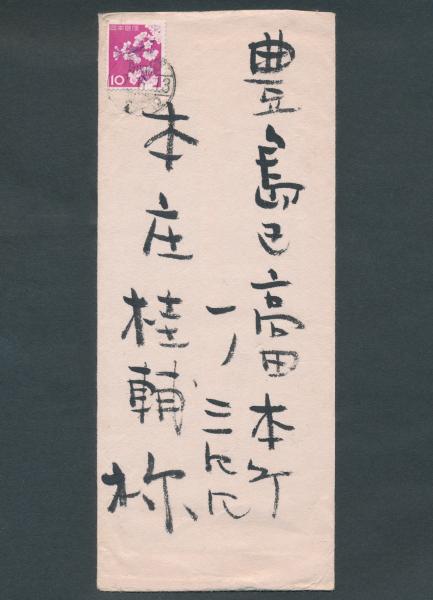 豊島区高田本町
一ノ三八八
本庄桂輔様
日本郵便
10